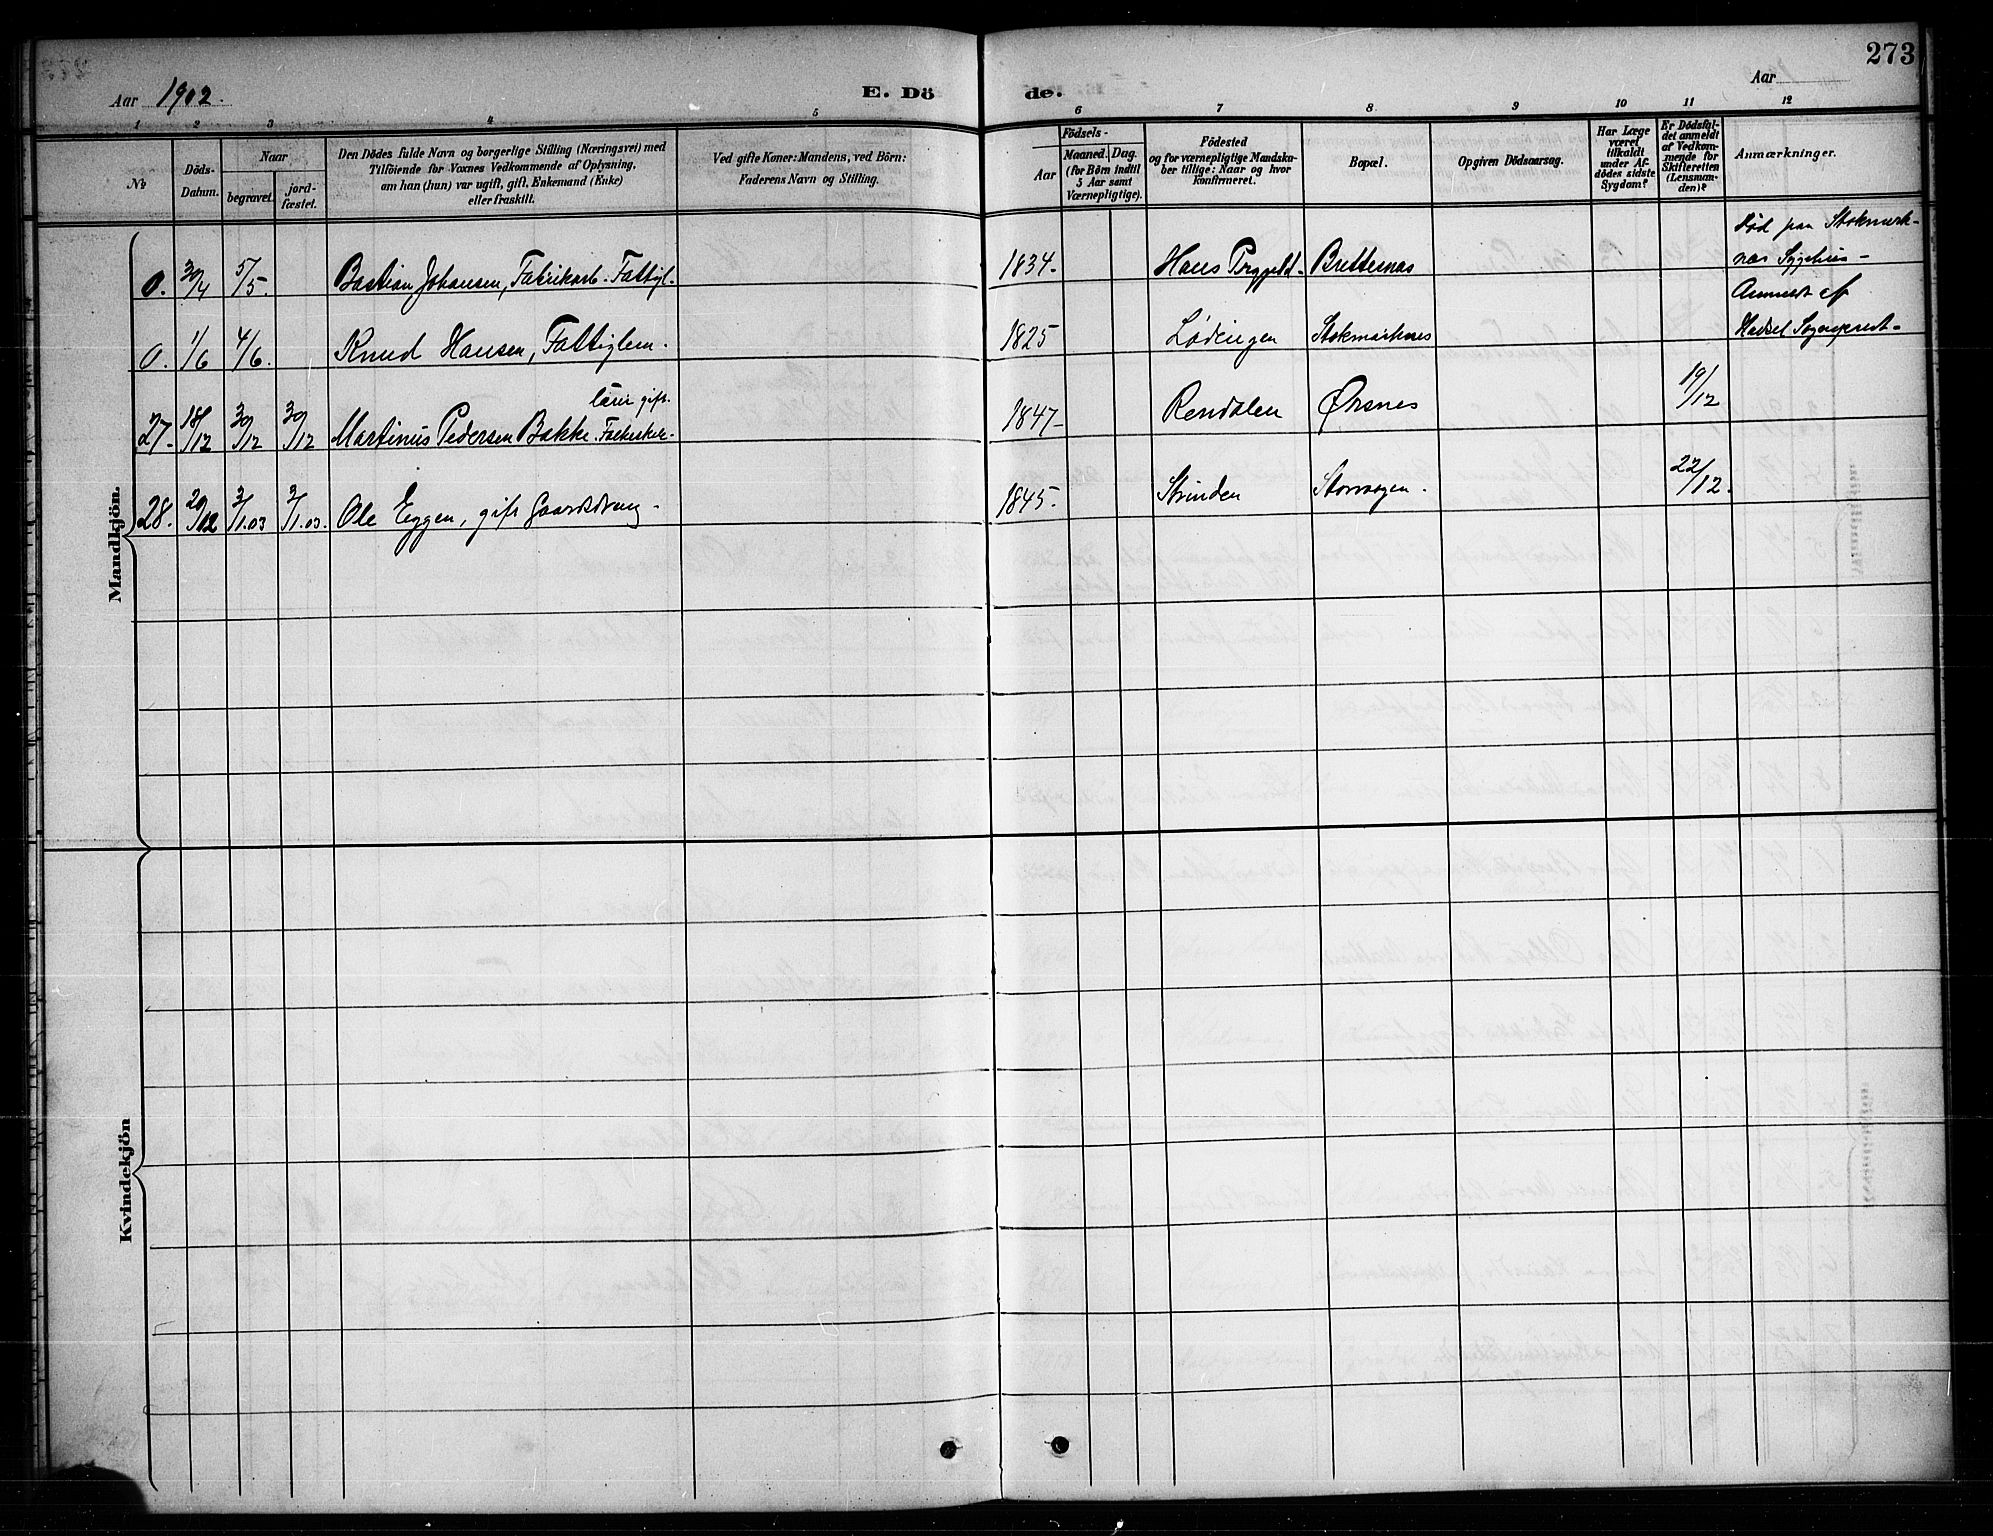 273
Aar 1902.
E. Döde.
Aar
1 2 3 4 5 6 7 8 9 10 11 12
No
Döds-Datum.
Naar
begravet.
jord-fæstet.
Den Dödes fulde Navn og borgerlige Stilling (Næringsvei) med
Tilföiende for Voxnes Vedkommende af Oplysning,
om han (hun) var ugift, gift, Enkemand (Enke)
eller fraskilt.
Ved gifte Koner: Mandens, ved Börn:
Faderens Navn og Stilling.
Födsels-
Aar
Maaned. Dag.
(for Börn indtil
5 Aar samt
Værnepligtige).
Födested
og for værnepligtige Mandska-
ber tillige: Naar og hvor
konfirmeret.
Bopæl.
Opgiven Dödsaarsag.
Har Læge
været
tilkaldt
under Af-
dödes sidste
Sygdom?
Er Dödsfal-
det anmeldt
af Vedkom-
mende for
Skifteretten
(Lensman-
den)?
Anmærkninger.
Mandkjön.
0. 30/4 5/5. Bastian Johansen, Fabrikarb. Fattigl. 1834. Hans Brettesnas Död paa Stokmark-
næs Sygehus -
0. 1/6 4/6. Knud Hansen, Fattiglem. 1825 Lödingen Stokmarknes Anmeldt af
Hadsel Sogneprest -
27. 18/12 30/12 30/12 Martinus Pedersen Bakke. Folkeskole-
lærer gift. 1847 Rendalen Ørsnes 19/12
28. 20/12 3/1.03 3/1.03. Ole Eggen, gift Gaardsdreng - 1845. Strinden Storvagen. 22/12.
Kvindekjön